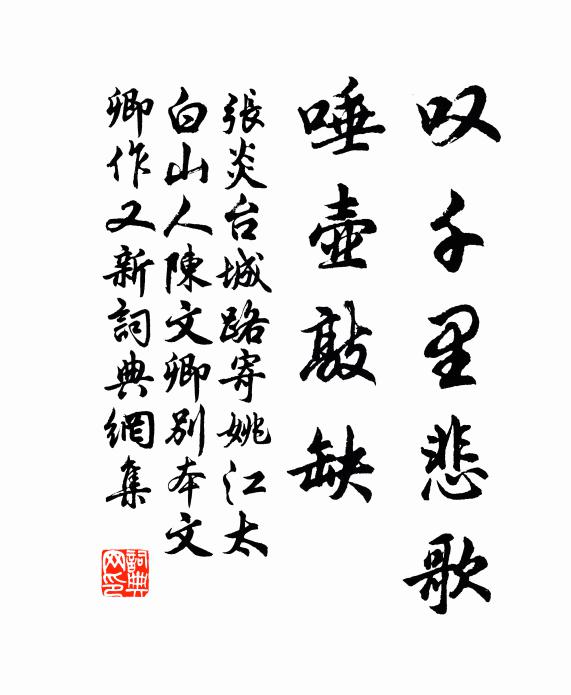 叹千里悲歌
唾壺敲缺
張炎台城路寄姚江太
白山人陳文卿別本文
卿作又新詞典網集
詞典網印